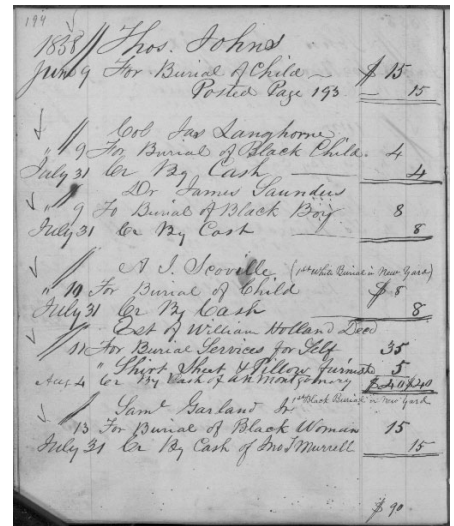 194
1858 // Thos. Johns
June 9 For Burial of Child — $ 15
Posted Page 193 — 15
✓ // Col Jas Langhorne
" 9 For Burial of Black Child. 4
July 31 Cr By Cash — 4
✓ // Dr James Saunders
" 9 To Burial of Black Boy 8
July 31 Cr By Cash — 8
✓ // A. J. Scoville (1st White Burial in New Yard)
" 10 For Burial of Child $ 8
July 31 Cr By Cash — 8
✓ // Est of William Holland Decd
" 11 For Burial Services for Self 35
" Shirt Sheet & Pillow furnished 5
Aug 4 Cr By Cash of Montgomery $40 $40
1st Black Burial in New Yard
✓ // Saml Garland Sr.
13 For Burial of Black Woman 15
July 31 Cr By Cash of Jno J Murrell 15
$ 90